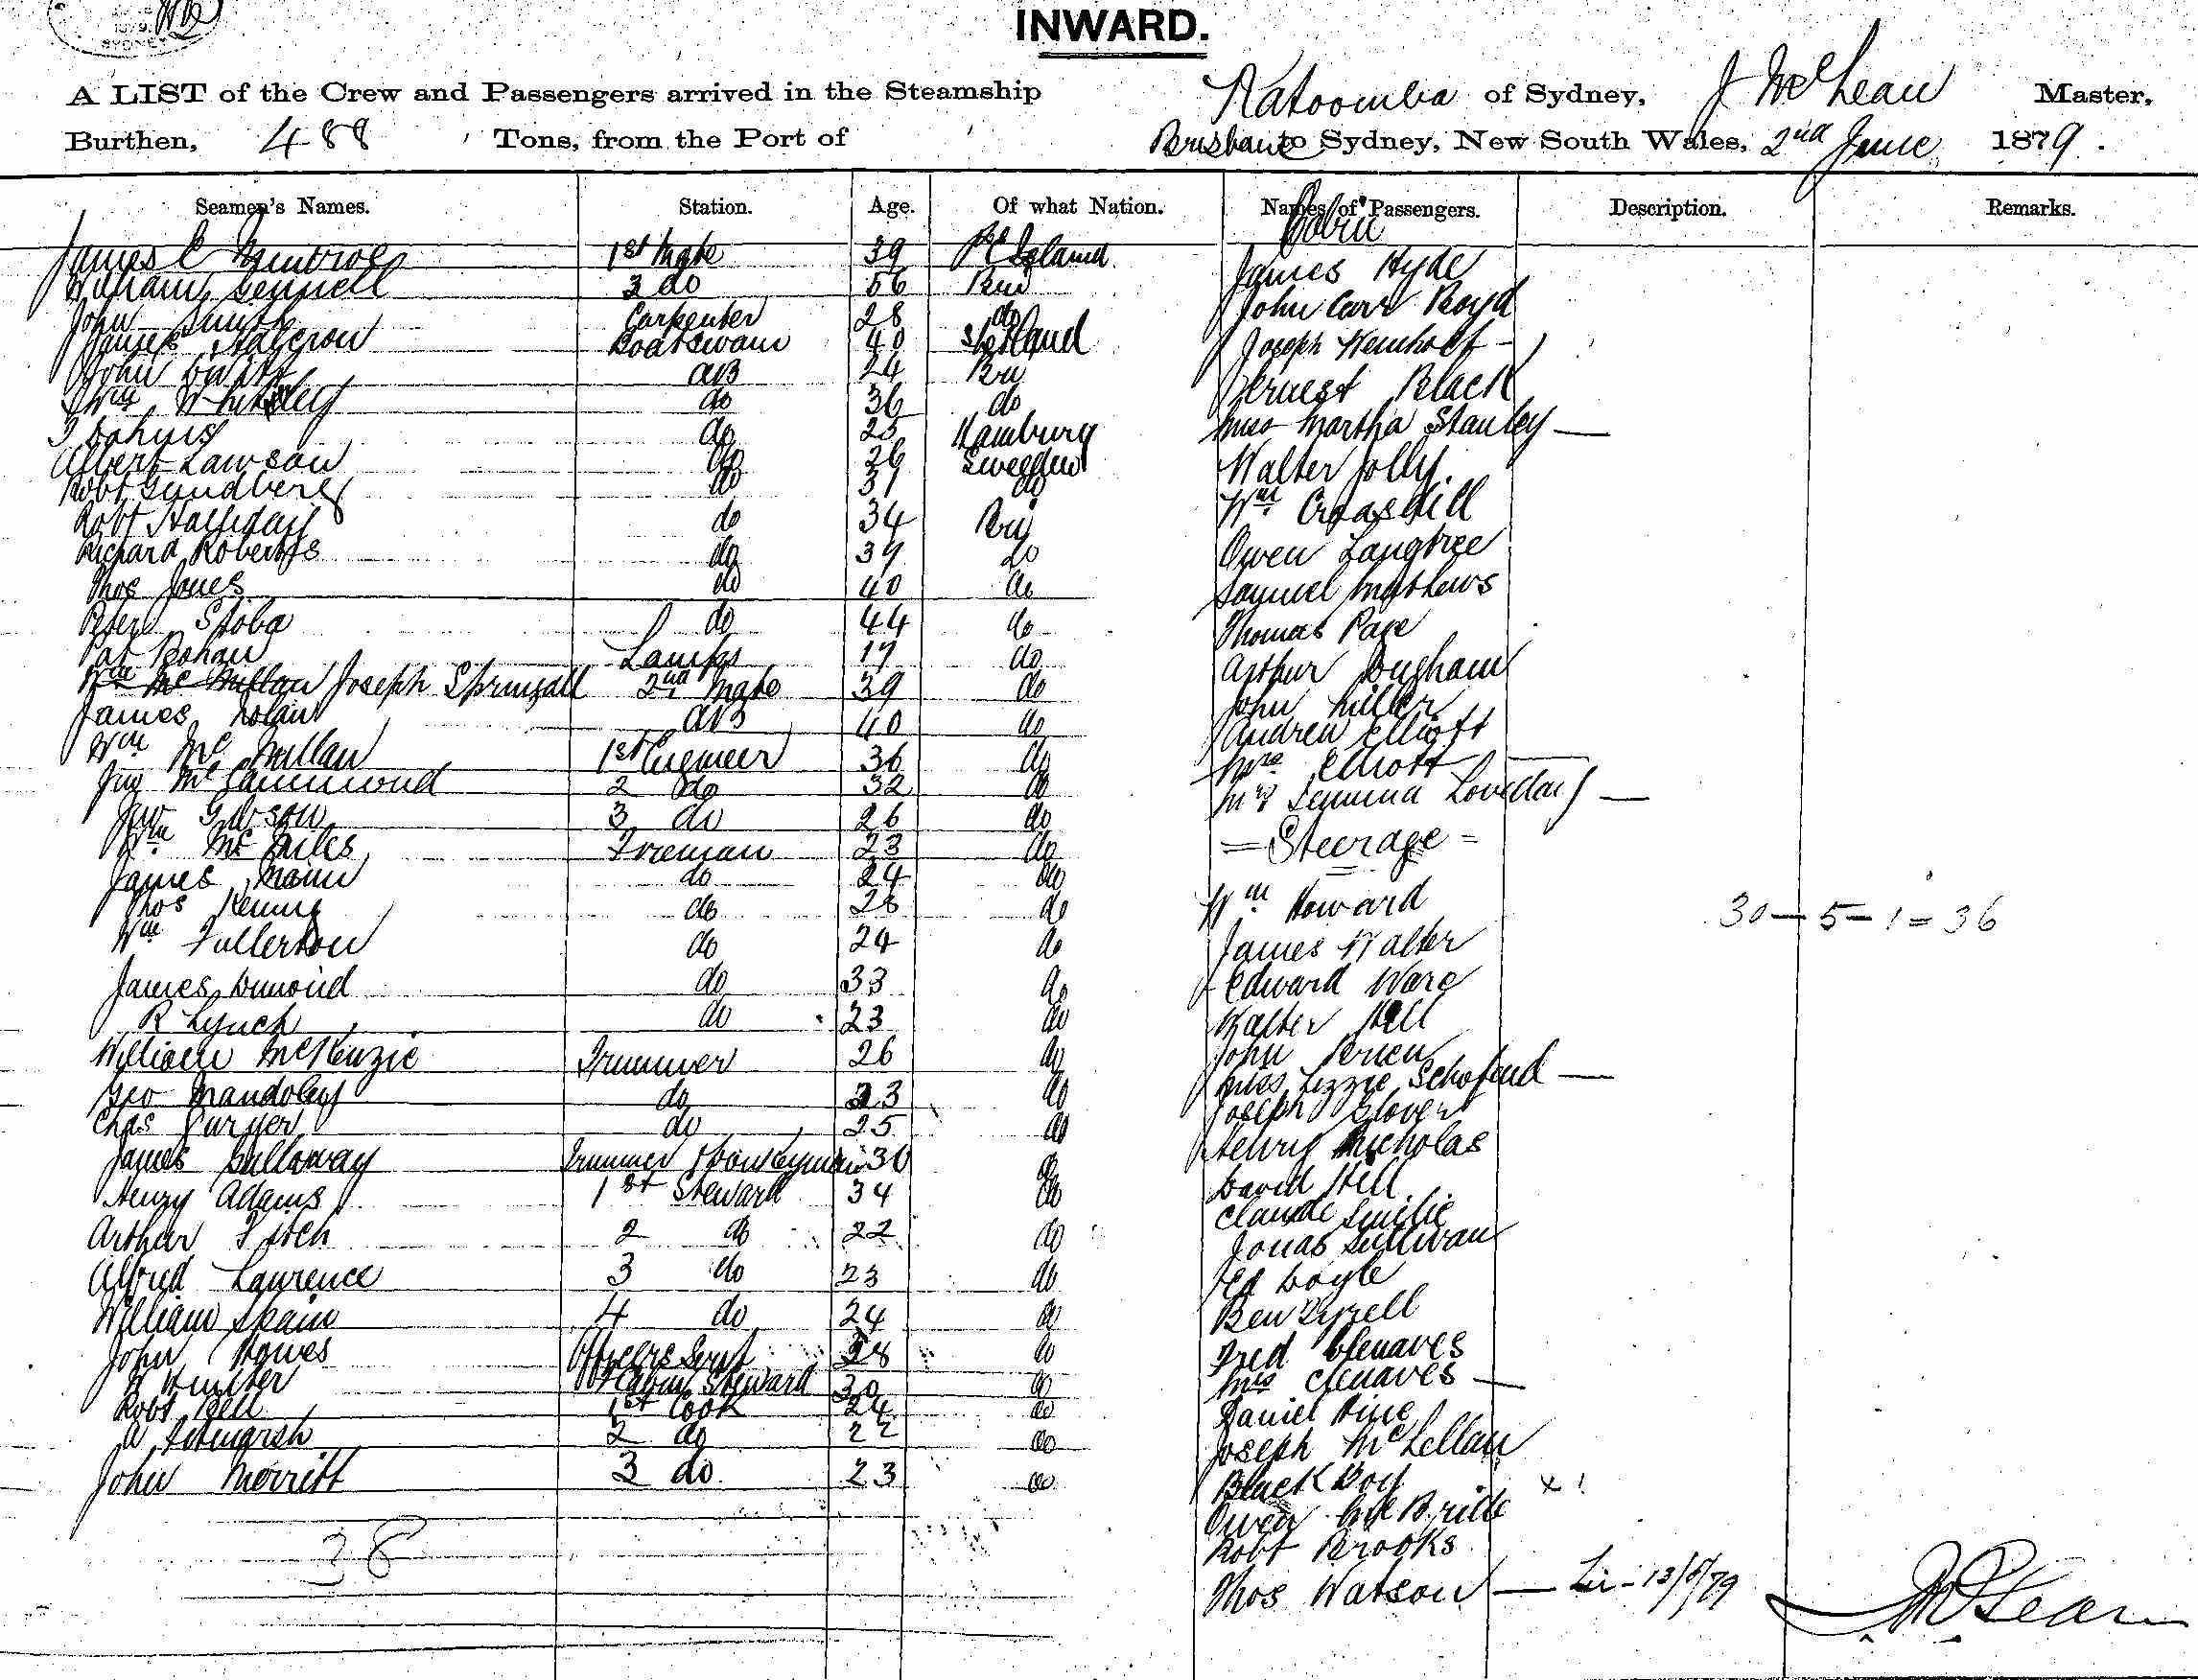 1879
SYDNEY
INWARD.
A LIST of the Crew and Passengers arrived in the Steamship Katoomba of Sydney, J McLean Master,
Burthen, 488 Tons, from the Port of Brisbane to Sydney, New South Wales, 2nd June 1879.
Seamen's Names. Station. Age. Of what Nation. Names of Passengers. Description. Remarks.
James C 1st Mate 39
William 3 do 56
John Smith Carpenter 28 do
James Halcrow Boatswain 40 Shetland
John 24
Wm Whiteley do 36 do
do 25 Hamburg
Albert Lawson do 26
Robt Lundberg do 31 do
Robt Halliday do 34 Bri
Richard Roberts do 39 do
Thos Jones do 40 do
Peter Stoba do 44 do
Pat Bohan Lamps 19 do
Wm McMillan Joseph 2nd Mate 39 do
James Nolan AB 40 do
Wm McMillan 1st Engineer 36 do
Jno McCammond 2 do 32 do
Jno Gibson 3 do 26 do
Wm Fireman 23 do
James Mann do 24 do
Thos Kenny do 28 do
Wm Fullerton do 24 do
James do 33 do
R Lynch do 23 do
William McKenzie Trimmer 26 do
Geo do 23 do
Chas do 25 do
James Galloway Trimmer 30 do
Henry Adams 1st Steward 34 do
Arthur 2 do 22 do
Alfred Laurence 3 do 23 do
William Spain 4 do 24 do
John Howes Officers Servt 28 do
W Hunter Steward 30 do
Robt Bell 1st Cook 24 do
A 2 do 22 do
John Morritt 3 do 23 do
38
James Hyde
John Carr Boyd
Joseph
Ernest Black
Miss Martha Stanley —
Walter Jolly
Wm Croasdill
Owen Langtree
Samuel Mathews
Thomas Page
Arthur
John Miller
Andrew Elliott
Mrs Elliott
Mrs Jemima Loveday —
= Steerage =
Wm Howard
James Walter
Edward Ware
Walter Hill
John
Miss Lizzie —
Joseph Glover
Henry Nicholas
David Hill
Claude
Jonas Sullivan
Ed Doyle
Ben Tyrell
Fred Clenaves
Mrs Clenaves —
Daniel
Joseph McLellan
Black Boy x 1
Owen McBride
Robt Brooks
Thos Watson
30 — 5 — 1 = 36
J McLean